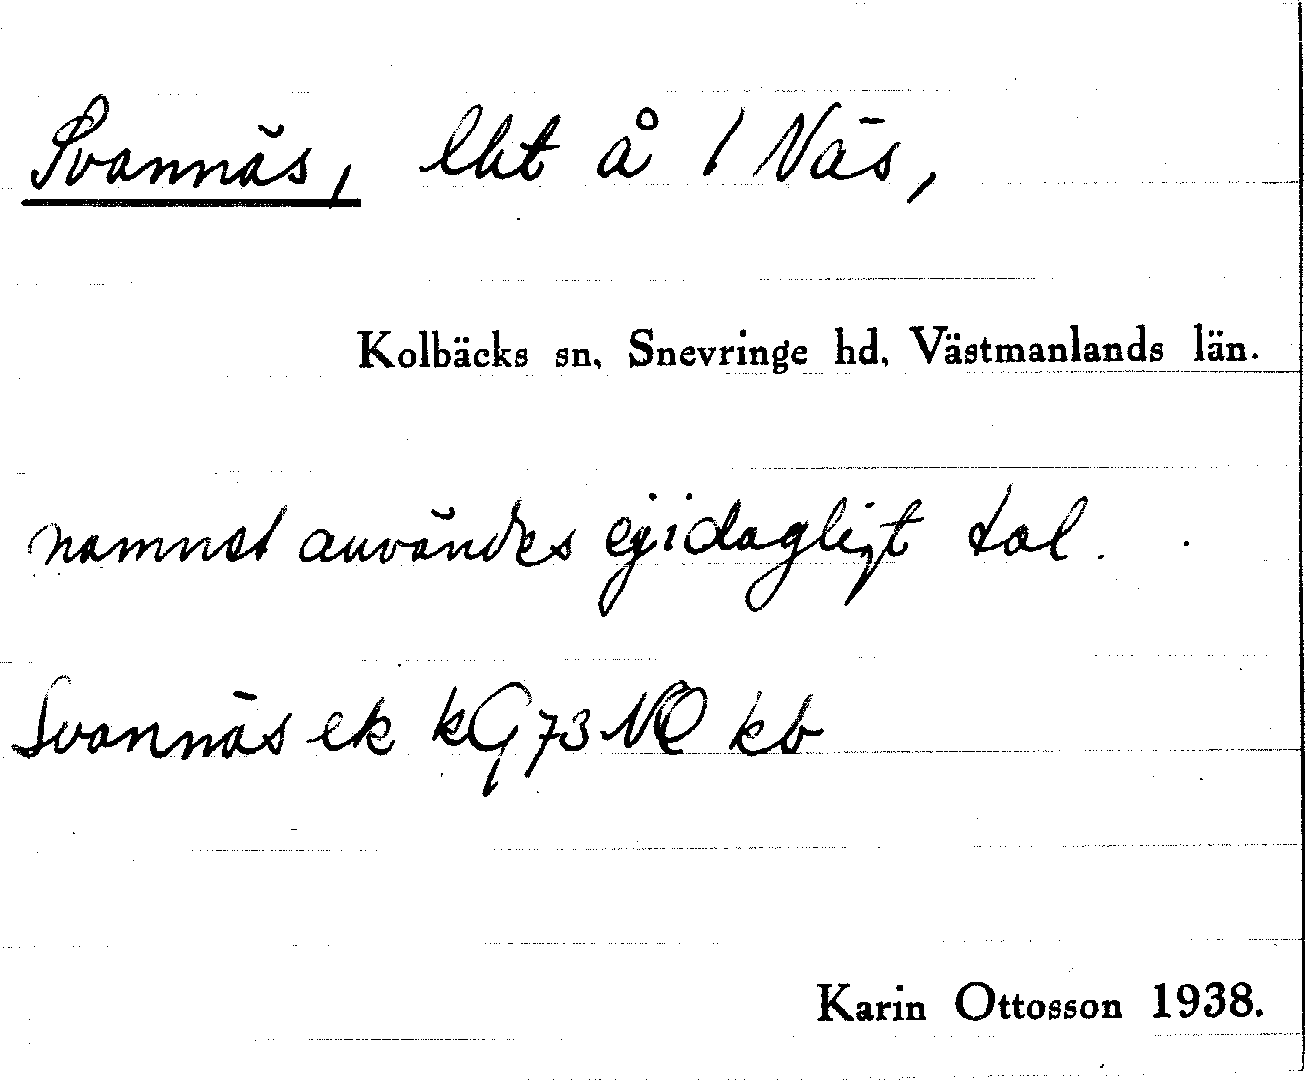 Svannäs, lht å 1 Näs,
Kolbäcks sn, Snevringe hd, Västmanlands län.
namnet användes ej i dagligt tal.
Svannäs ek kG 73 NO kb
Karin Ottosson 1938.